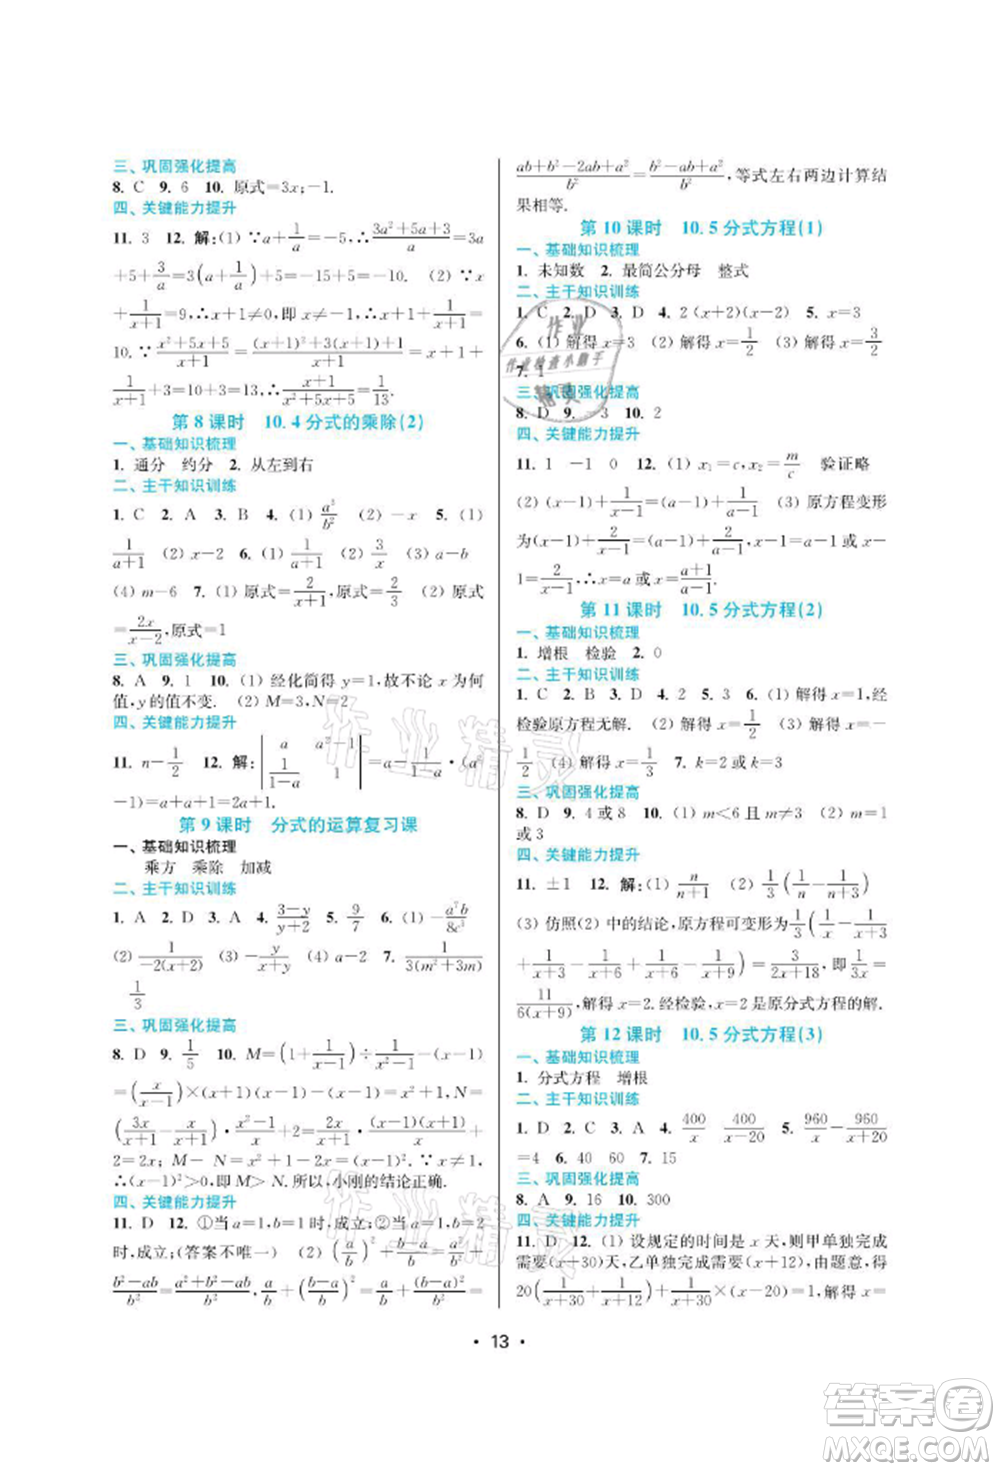 三、巩固强化提高
8. C  9. 6  10. 原式=3x;-1.
四、关键能力提升
11. 3  12. 解:(1) ∵a+1/a=-5,∴(3a²+5a+3)/a=3a
+5+3/a=3(a+1/a)+5=-15+5=-10.  (2) ∵x
+1/(x+1)=9,∴x+1≠0,即x+1+1/(x+1)=
10. ∵(x²+5x+5)/(x+1)=((x+1)²+3(x+1)+1)/(x+1)=x+1
+1/(x+1)+3=10+3=13,∴原式=1/13.
第 8 课时  10. 4 分式的乘除(2)
一、基础知识梳理
1. 通分  约分  2. 从左到右
二、主干知识训练
1. C  2. A  3. B  4. (1) a³/b²  (2) -x  5. (1)
1/(a+1)  (2) x-2  6. (1) 1/(a+1)  (2) 3/x  (3) a-b
(4) m-6  7. (1) 原式=2/(x+1),原式=2/3  (2) 原式
=2x/(x-2),原式=1
三、巩固强化提高
8. A  9. 1  10. (1) 经化简得 y=1,故不论 x 为何
值,y 的值不变.  (2) M=3,N=2
四、关键能力提升
11. n-1/2  12. 解: |a  a²-1; 1/(1-a)  1/(1-a)|=a-1/(1-a)·(a²
-1)=a+a+1=2a+1.
第 9 课时  分式的运算复习课
一、基础知识梳理
乘方  乘除  加减
二、主干知识训练
1. A  2. D  3. A  4. (3-y)/(y+2)  5. 9/7  6. (1) -a⁷b/8c³
(2) 1/(-2(x+2))  (3) -y/(x+y)  (4) a-2  7. 1/(3(m²+3m))
1/3
三、巩固强化提高
8. D  9. 1/5  10. M=(1+1/(x-1))÷1/((x+1)(x-1))
=(x/(x-1))×(x+1)(x-1)=x(x+1)=x²+x,N=
(3x/(x+1)-x/(x-1))·(x²-1)/x+2=3(x-1)-(x+1)+
2=2x-2; M-N=x²+x-(2x-2)
∴(x-1)²>0,即M>N,所以小刚的结论正确.
四、关键能力提升
11. D  12. ①当 a=1,b=1时,成立;②当 a=1,b=2
时,成立;(答案不唯一)  (2) (a/b)²+(b-a)/b=a²/b²+
(b²-ab)/b²=(a²+b²-ab)/b²,a/b+((b-a)/b)²=a/b+(b²-2ab+a²)/b²=
· 13 ·
(ab+b²-2ab+a²)/b²=(b²-ab+a²)/b²,等式左右两边计算结
果相等.
第 10 课时  10. 5 分式方程(1)
一、基础知识梳理
1. 未知数  2. 最简公分母  整式
二、主干知识训练
1. C  2. D  3. D  4. 2(x+2)(x-2)  5. x=3
6. (1) 解得 x=3  (2) 解得 x=1/2  (3) 解得 x=4
7. 1
三、巩固强化提高
8. D  9. 3  10. 2
四、关键能力提升
11. 1  -1  0  12. (1) x₁=c,x₂=m/c  验证略
(2) (x-1)+2/(x-1)=(a-1)+2/(a-1)  (3) 原方程变形
为(x-1)+2/(x-1)=(a-1)+2/(a-1),x-1=a-1或x-
1=2/(a-1),∴x=a或x=(a+1)/(a-1).
第 11 课时  10. 5 分式方程(2)
一、基础知识梳理
1. 增根  检验  2. 0
二、主干知识训练
1. C  2. B  3. D  4. 2  5. 3  6. (1) 解得 x=1,经
检验原方程无解.  (2) 解得 x=1/2  (3) 解得 x=
1/2  (4) 解得 x=-1/2  7. k=2或k=3
三、巩固强化提高
8. D  9. 4或8  10. (1) m<6 且 m≠3  (2) m=1
或 3
四、关键能力提升
11. ±1  12. 解:(1) n/(n+1)  (2) 1/3(1/n-1/(n+3))
(3) 仿照(2) 中的结论,原方程可变形为1/3(1/x-1/(x+3)
+1/(x+3)-1/(x+6)+1/(x+6)-1/(x+9))=3/(2x+18),即1/3x=
11/(6(x+9)),解得 x=2. 经检验,x=2是原分式方程的解.
第 12 课时  10. 5 分式方程(3)
一、基础知识梳理
1. 分式方程  增根
二、主干知识训练
1. D  2. C  3. A  4. 400/x  400/(x-20)  5. 960/x-960/(x+20)
=4  6. 40  60  7. 15
三、巩固强化提高
8. A  9. 16  10. 300
四、关键能力提升
11. D  12. (1) 设规定的时间是 x 天,则甲单独完成
需要(x+30)天,乙单独完成需要(x+12)天,由题意,得
20(1/(x+30)+1/(x+12))+1/(x+30)×(x-20)=1,解得 x=
作业
作业检查小助手
精灵
作业精灵
作业精灵
答案圈
MXQE.COM